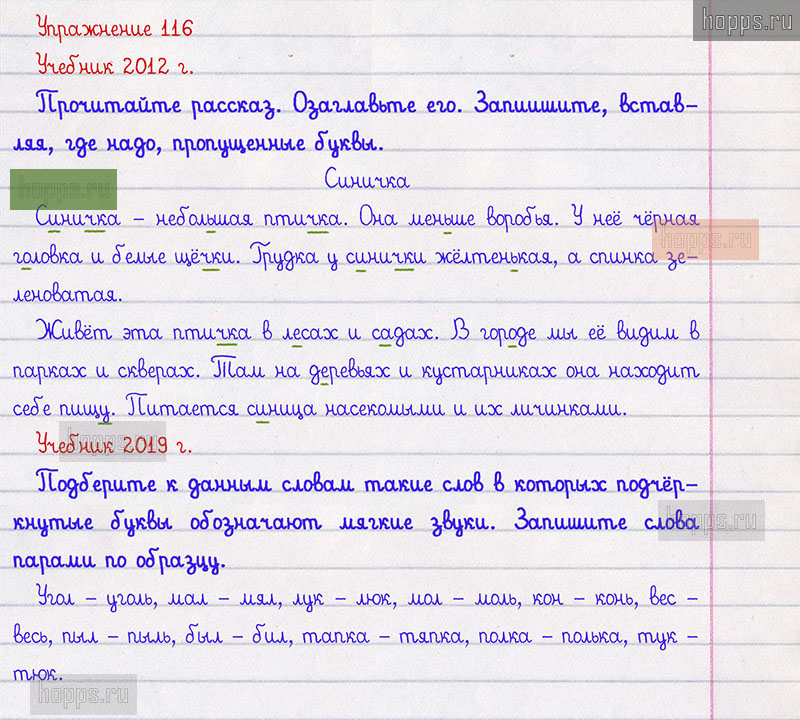 hopps.ru
Упражнение 116
Учебник 2012 г.
Прочитайте рассказ. Озаглавьте его. Запишите, встав-
ляя, где надо, пропущенные буквы.
hopps.ru
Синичка
Синичка – небольшая птичка. Она меньше воробья. У неё чёрная
hopps.ru
головка и белые щёчки. Грудка у синички жёлтенькая, а спинка зе-
леноватая.
Живёт эта птичка в лесах и садах. В городе мы её видим в
парках и скверах. Там на деревьях и кустарниках она находит
себе пищу. Питается синица насекомыми и их личинками.
hopps.ru
Учебник 2019 г.
Подберите к данным словам такие слов в которых подчёр-
кнутые буквы обозначают мягкие звуки. Запишите слова
hopps.ru
парами по образцу.
Угол – уголь, мал – мял, лук – люк, мол – моль, кон – конь, вес –
весь, пыл – пыль, был – бил, тапка – тяпка, полка – полька, тук –
тюк.
hopps.ru